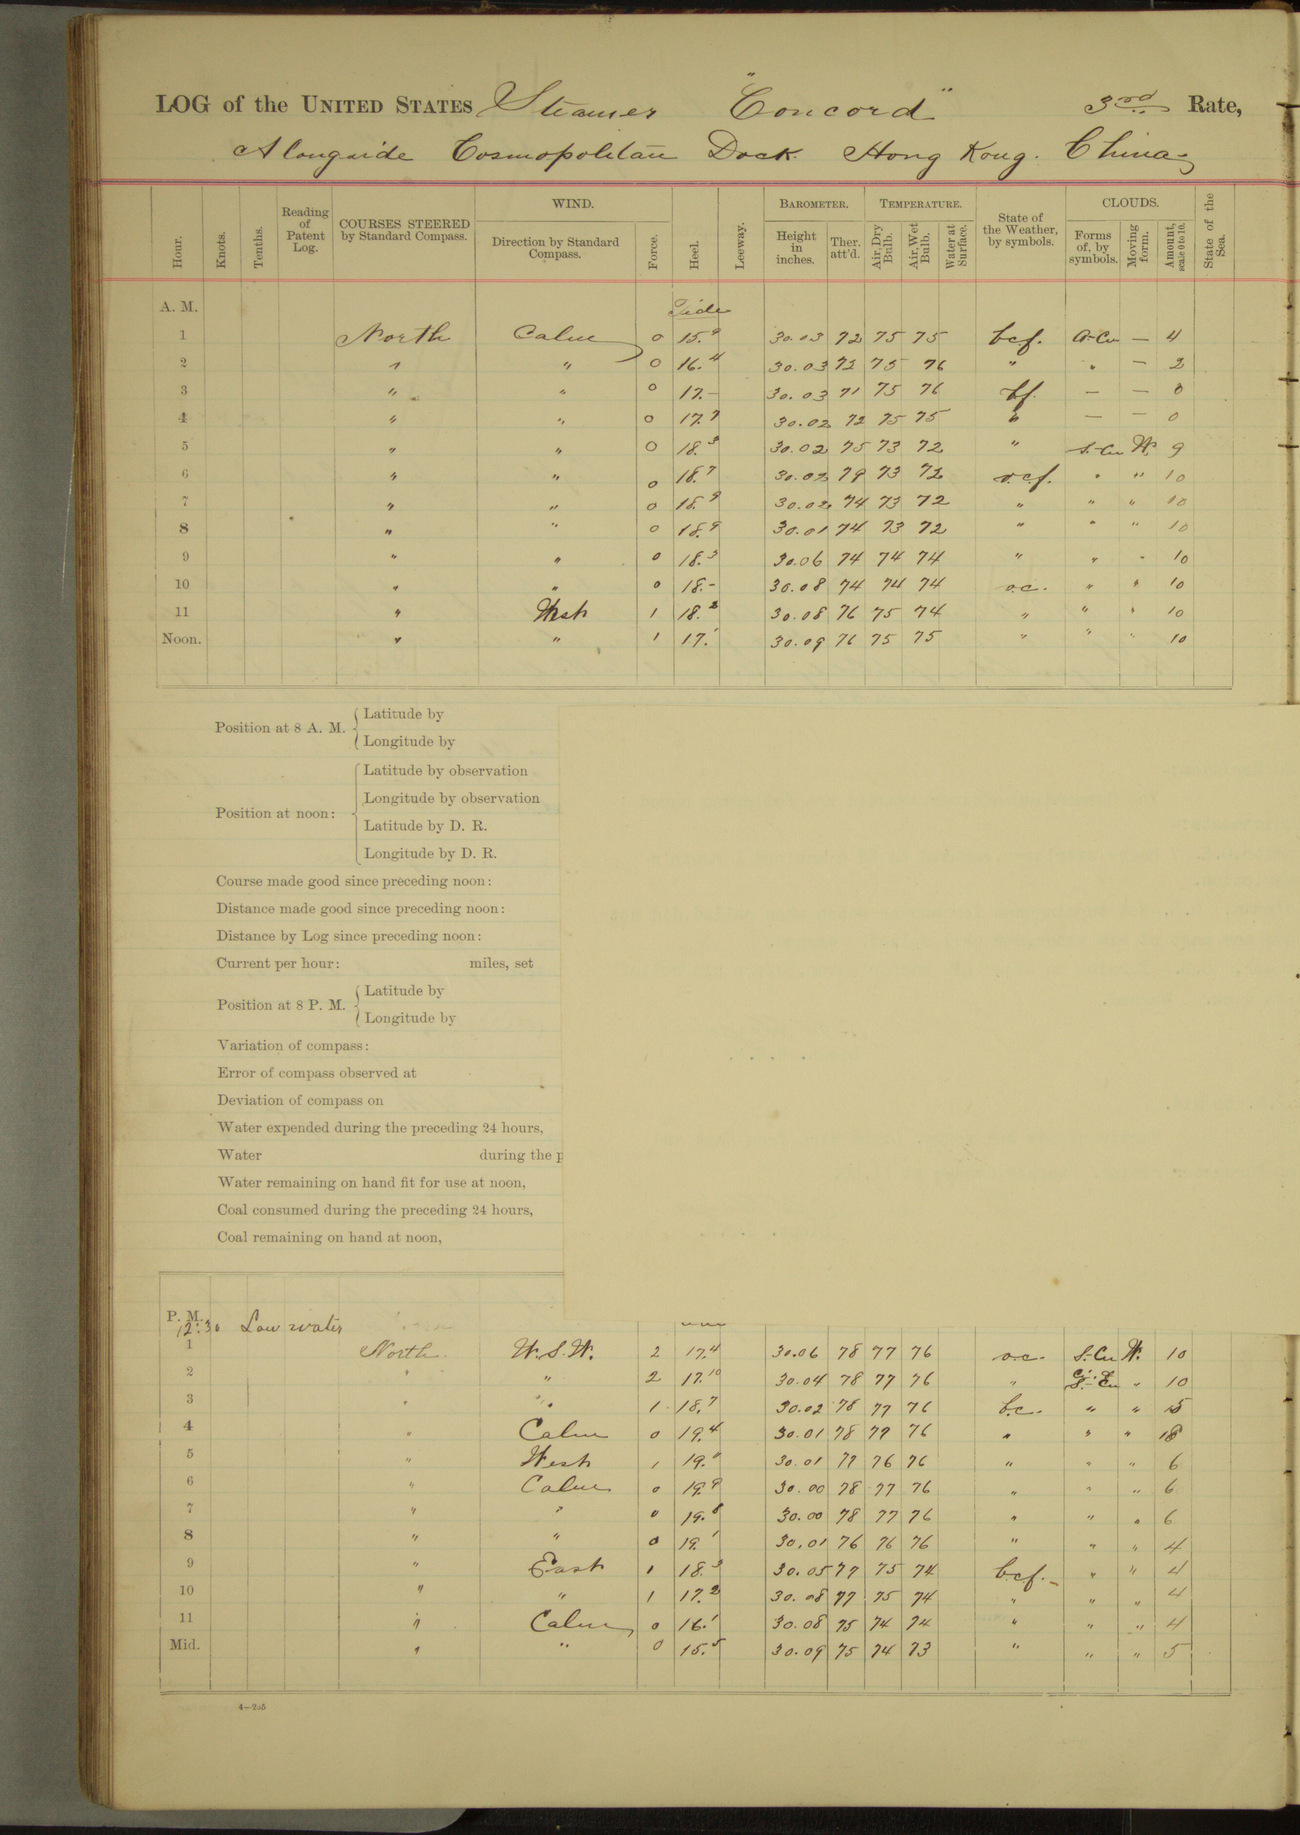 LOG of the UNITED STATES Steamer "Concord" 3rd Rate,
Alongside Cosmopolitan Dock Hong Kong. China
Hour. Knots. Tenths. Reading of Patent Log. COURSES STEERED by Standard Compass. WIND. Direction by Standard Compass. Force. Heel. Leeway. BAROMETER. Height in inches. Ther. att'd. TEMPERATURE. Air, Dry Bulb. Air, Wet Bulb. Water at Surface. State of the Weather, by symbols. CLOUDS. Forms of, by symbols. Moving form. Amount, scale 0 to 10. State of the Sea.
A. M. Tide
1 North Calm 0 15.9 30.03 72 75 75 bcf. A-Cu — 4
2 " " 0 16.4 30.03 72 75 76 " " — 2
3 " " 0 17.- 30.03 71 75 76 bf. — — 0
4 " " 0 17.7 30.02 72 75 75 " — — 0
5 " " 0 18.3 30.02 75 73 72 " S.-Cu W. 9
6 " " 0 18.7 30.02 79 73 72 o.c.f. " " 10
7 " " 0 18.9 30.02 74 73 72 " " " 10
8 " " 0 18.9 30.01 74 73 72 " " " 10
9 " " 0 18.3 30.06 74 74 74 " " " 10
10 " " 0 18.- 30.08 74 74 74 o.c. " " 10
11 " West 1 18.2 30.08 76 75 74 " " " 10
Noon. " " 1 17.1 30.09 76 75 75 " " " 10
Position at 8 A. M. Latitude by
Longitude by
Position at noon: Latitude by observation
Longitude by observation
Latitude by D. R.
Longitude by D. R.
Course made good since preceding noon:
Distance made good since preceding noon:
Distance by Log since preceding noon:
Current per hour: miles, set
Position at 8 P. M. Latitude by
Longitude by
Variation of compass:
Error of compass observed at
Deviation of compass on
Water expended during the preceding 24 hours,
Water during the p
Water remaining on hand fit for use at noon,
Coal consumed during the preceding 24 hours,
Coal remaining on hand at noon,
P. M.
12:30 Low water
1 North W.S.W. 2 17.4 30.06 78 77 76 o.c. S.Cu W. 10
2 " " 2 17.10 30.04 78 77 76 " " 10
3 " " 1 18.7 30.02 78 77 76 b.c. " " 5
4 " Calm 0 19.4 30.01 78 77 76 " " " 8
5 " West 1 19. 30.01 77 76 76 " " " 6
6 " Calm 0 19.9 30.00 78 77 76 " " " 6
7 " " 0 19.8 30.00 78 77 76 " " " 6
8 " " 0 19.1 30.01 76 76 76 " " " 4
9 " East 1 18.3 30.05 77 75 74 b.c.f. " " 4
10 " " 1 17.2 30.08 77 75 74 " " " 4
11 " Calm 0 16.1 30.08 75 74 74 " " " 4
Mid. " " 0 15.5 30.09 75 74 73 " " " 5
4—205